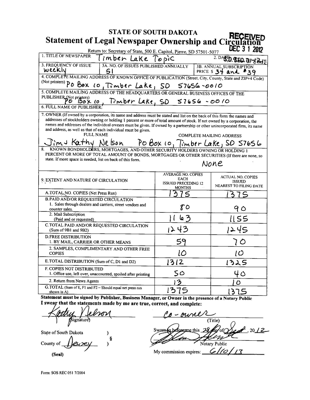 STATE OF SOUTH DAKOTA
RECEIVED
Statement of Legal Newspaper Ownership and Circulation
DEC 31 2012
Return to: Secretary of State, 500 E. Capitol, Pierre, SD 57501-5077
1. TITLE OF NEWSPAPER
Timber Lake Topic
2. DATE
3. FREQUENCY OF ISSUE
weekly
3A. NO. OF ISSUES PUBLISHED ANNUALLY
51
3B. ANNUAL SUBSCRIPTION
PRICE $ 34 and $39
4. COMPLETE MAILING ADDRESS OF KNOWN OFFICE OF PUBLICATION (Street, City, County, State and ZIP+4 Code)
(Not printers)
Po Box 10, Timber Lake, SD 57656-0010
5. COMPLETE MAILING ADDRESS OF THE HEADQUARTERS OR GENERAL BUSINESS OFFICES OF THE
PUBLISHER (Not printers)
Po Box 10, Timber Lake, SD 57656-0010
6. FULL NAME OF PUBLISHER
7. OWNER (If owned by a corporation, its name and address must be stated and also the names and
addresses of stockholders owning or holding 1 percent or more of total amount of stock. If not owned by a corporation, the
names and addresses of the individual owners must be given. If owned by a partnership or other unincorporated firm, its name
and address, as well as that of each individual must be given.
FULL NAME
COMPLETE MAILING ADDRESS
Jim & Kathy Nelson Po Box 10, Timber Lake, SD 57656
8. KNOWN BONDHOLDERS, MORTGAGEES, AND OTHER SECURITY HOLDERS OWNING OR HOLDING 1
PERCENT OR MORE OF TOTAL AMOUNT OF BONDS, MORTGAGES OR OTHER SECURITIES (If there are none, so
state. If more space is needed, list on back of this form.
None
9. EXTENT AND NATURE OF CIRCULATION
AVERAGE NO. COPIES
EACH
ISSUED PRECEDING 12
MONTHS
ACTUAL NO. COPIES
ISSUED
NEAREST TO FILING DATE
A. TOTAL NO. COPIES (Net Press Run)
1375
1375
B. PAID AND/OR REQUESTED CIRCULATION
1. Sales through dealers and carriers, street vendors and
counter sales.
80
90
2. Mail Subscription
(Paid and or requested)
1163
1155
C. TOTAL PAID AND/OR REQUESTED CIRCULATION
(Sum of 9B1 and 9B2)
1243
1245
D. FREE DISTRIBUTION
1. BY MAIL, CARRIER OR OTHER MEANS
59
70
2. SAMPLES, COMPLIMENTARY AND OTHER FREE
COPIES
10
10
E. TOTAL DISTRIBUTION (Sum of C, D1 and D2)
1312
1325
F. COPIES NOT DISTRIBUTED
1. Office use, left over, unaccounted, spoiled after printing
50
40
2. Return from News Agents
13
10
G. TOTAL (Sum of E, F1 and F2 - Should equal net press run
shown in A)
1375
1375
Statement must be signed by Publisher, Business Manager, or Owner in the presence of a Notary Public
I swear that the statements made by me are true, correct, and complete:
Kathy Nelson
(Signature)
co-owner
(Title)
State of South Dakota )
County of Dewey )
§
(Seal)
Notary Public
My commission expires: 6/10/13
Form: SOS REC 051 7/2004